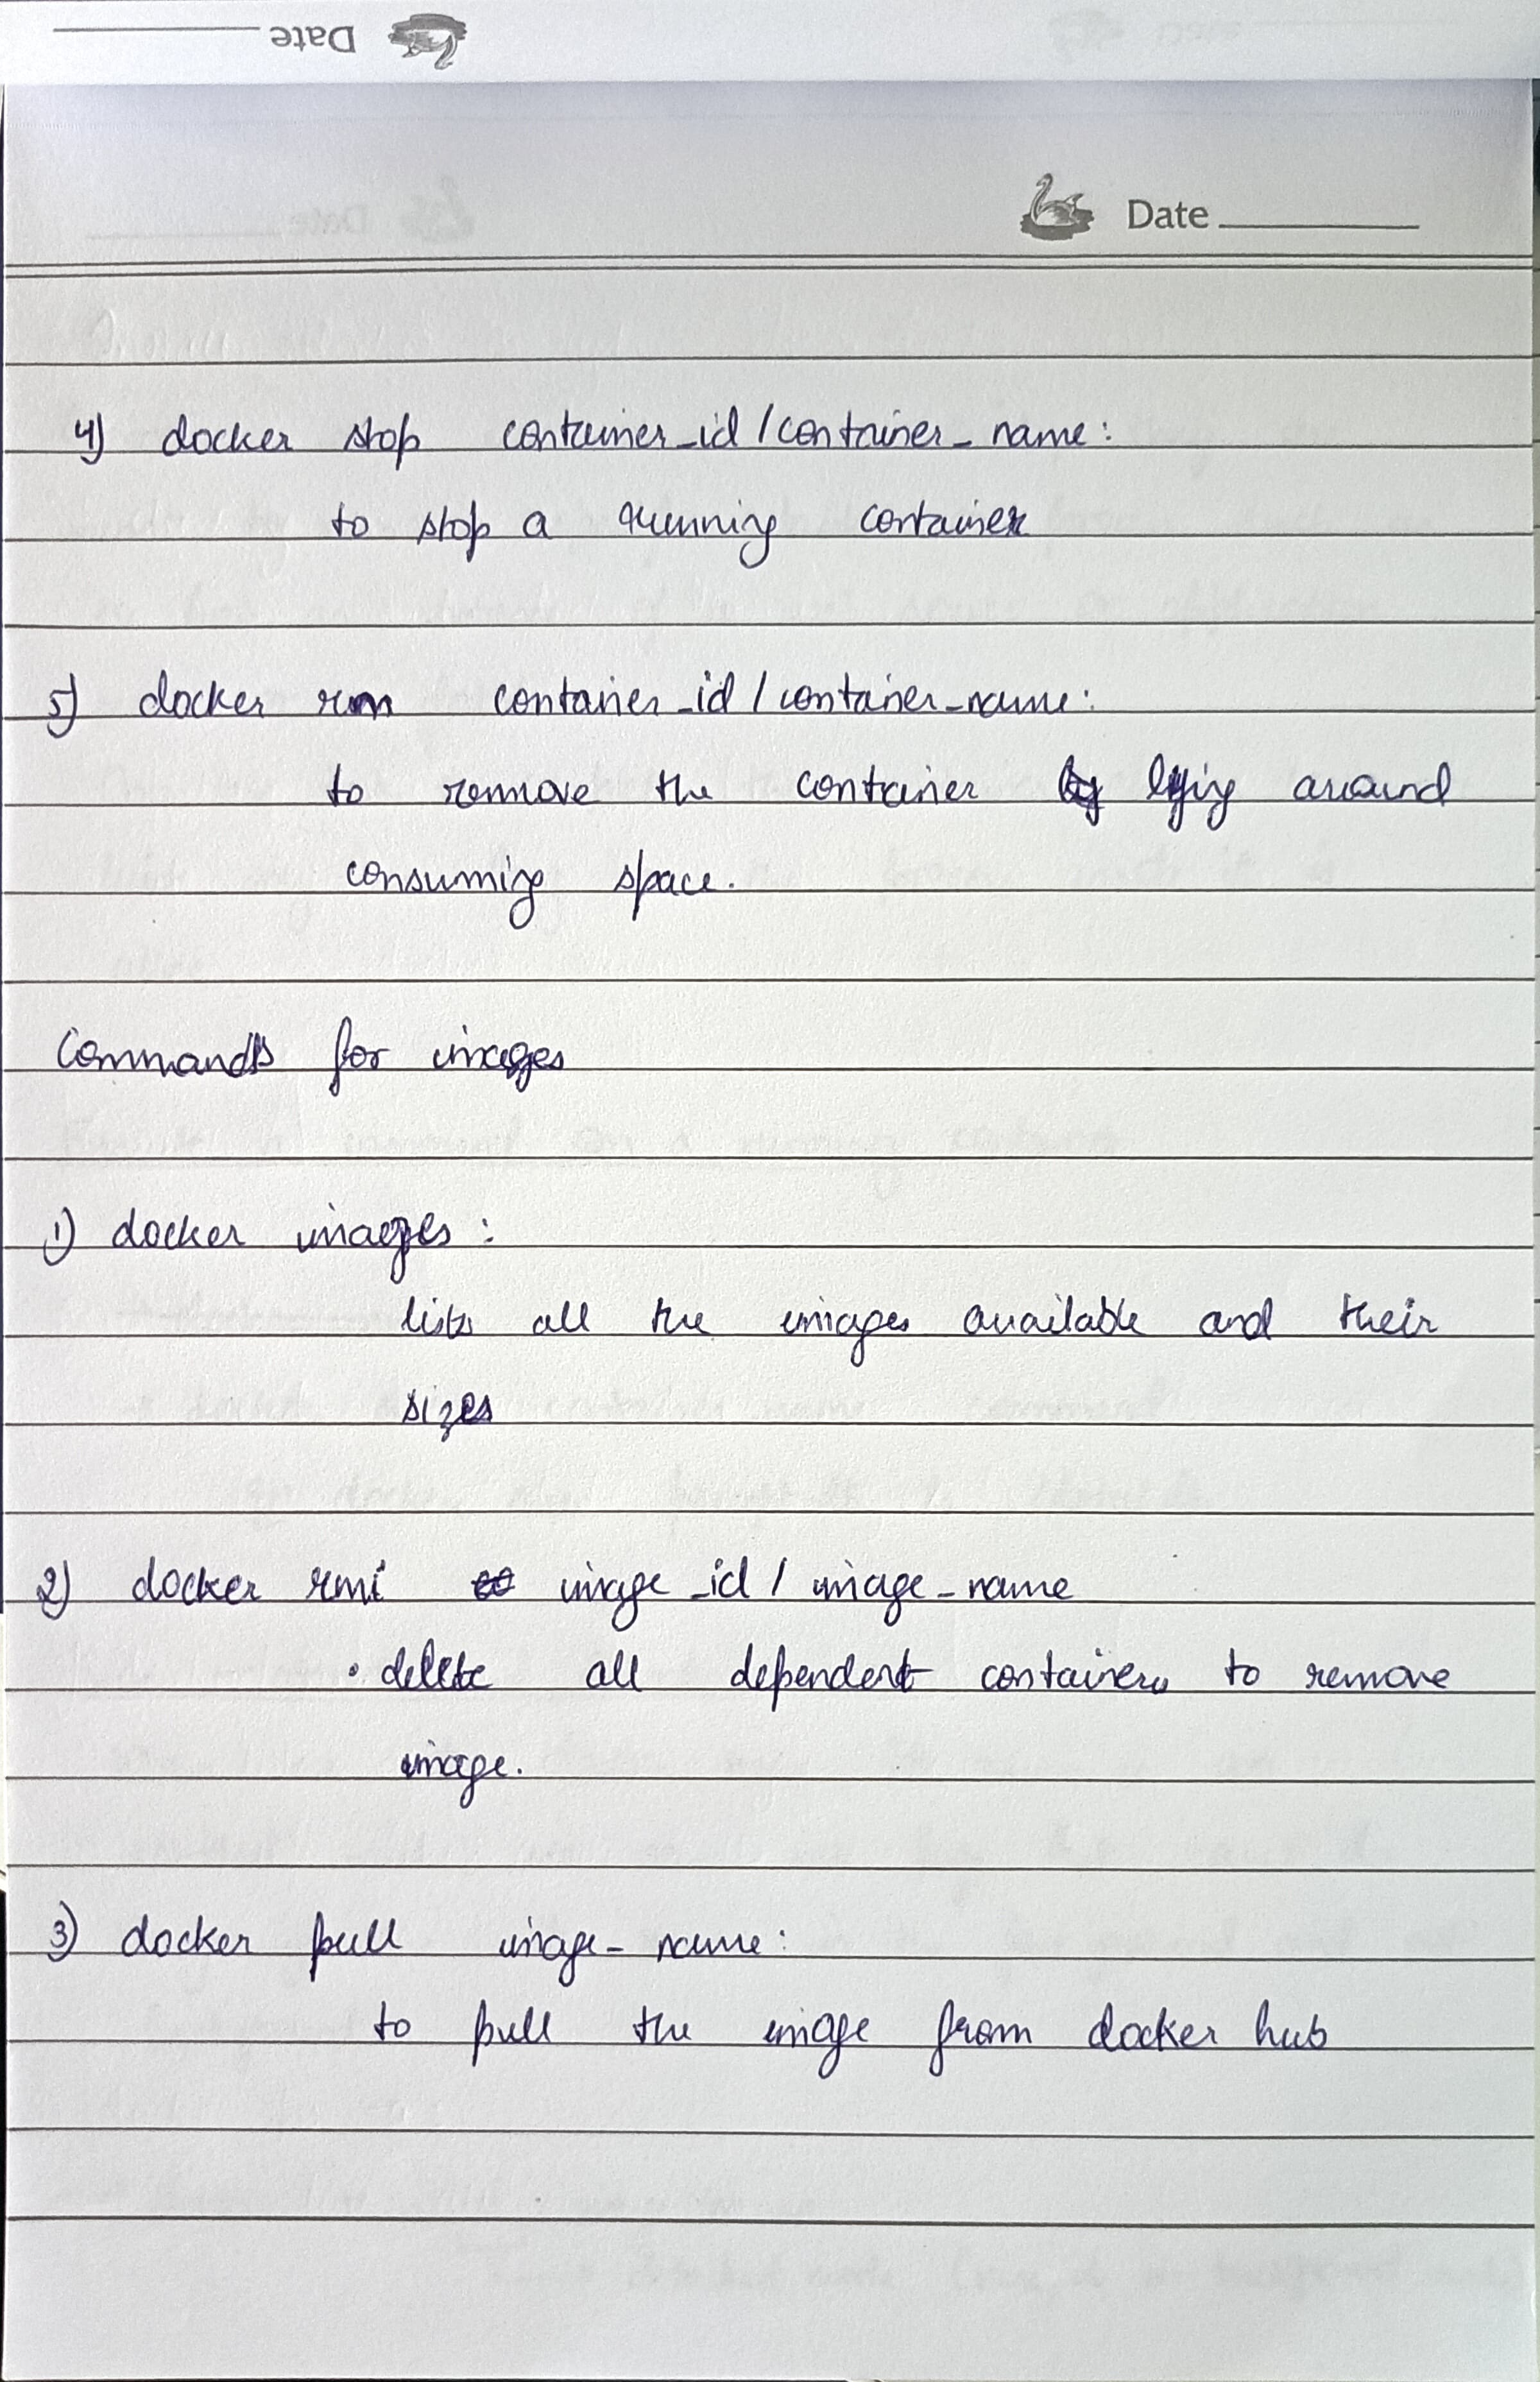 Date
Date
4) docker stop container_id / container_name:
to stop a running container
5) docker rm container_id / container_name:
to remove the container lying around
consuming space.
Commands for images
1) docker images:
lists all the images available and their
sizes
2) docker rmi image_id / image_name
• delete all dependent containers to remove
image.
3) docker pull image_name:
to pull the image from docker hub